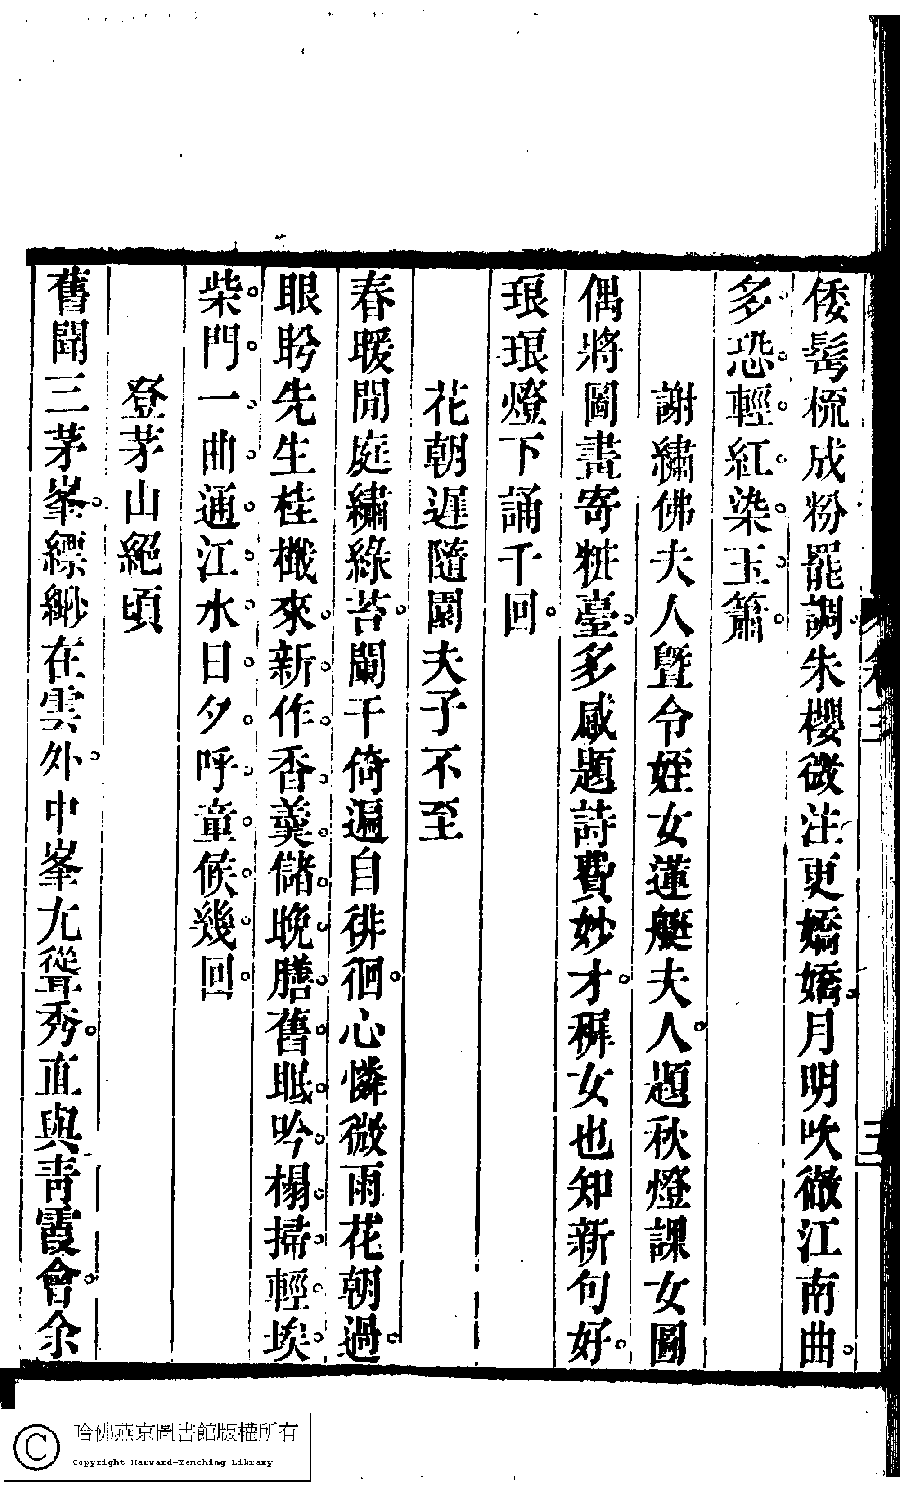 倭髩梳成粉罷調朱櫻微注更嬌嬌月明吹徹江南曲
多恐輕紅染玉簫
謝繡佛夫人曁令姪女蓮艇夫人題秋燈課女圖
偶將圖畫寄粧臺多感題詩費妙才穉女也知新句好
琅琅燈下誦千回
花朝遲隨園夫子不至
春暖閒庭繡綠苔闌干倚遍自徘徊心憐微雨花朝過
眼盼先生桂檝來新作香羹儲晚膳舊眠吟榻掃輕埃
柴門一曲通江水日夕呼童候幾回
登茅山絕頃
舊聞三茅峯縹緲在雲外中峯尤聳秀直與靑霞會余
哈佛燕京圖書館版權所有
Copyright Harvard-Yenching Library